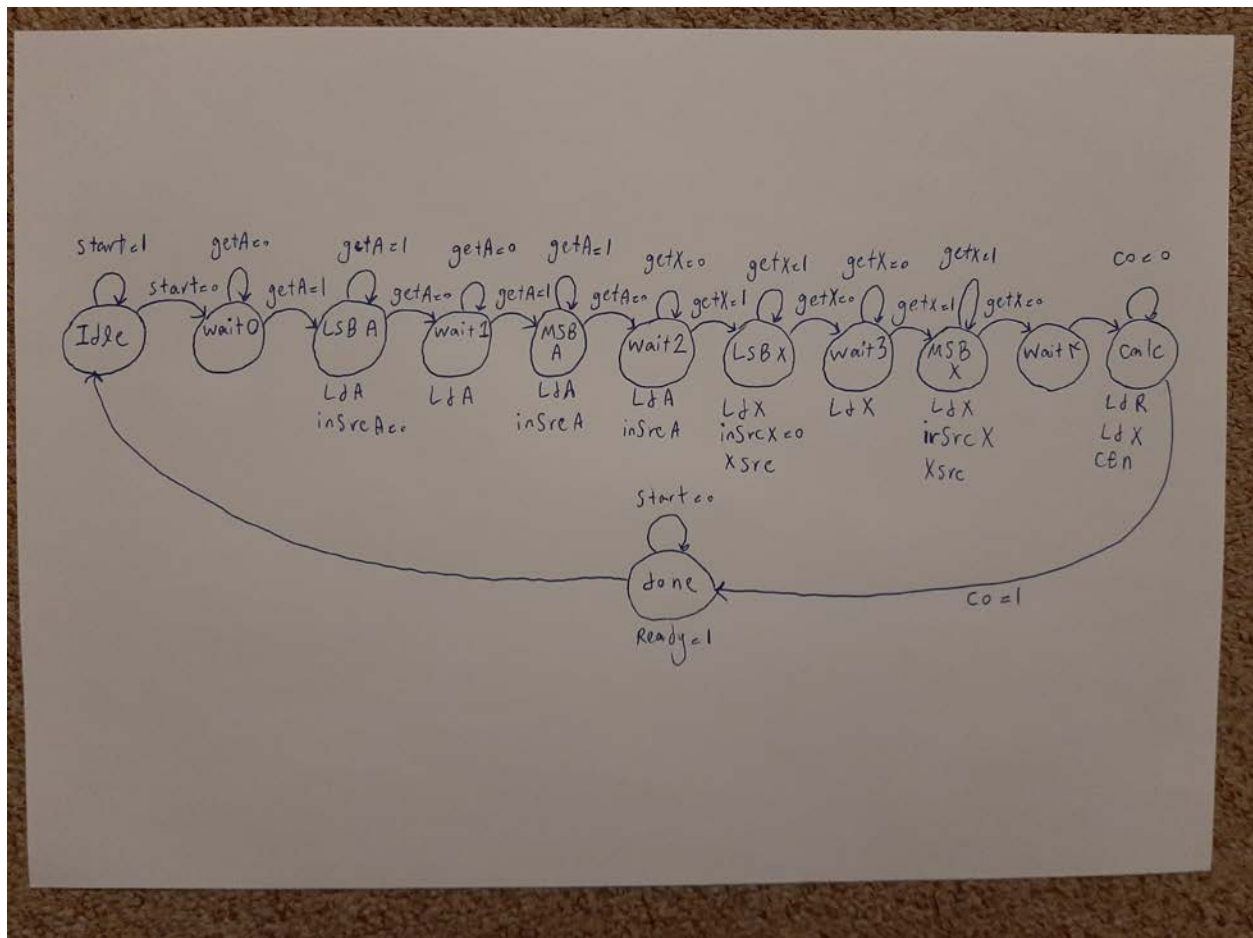 start=1
getA=0
getA=1
getA=0
getA=1
getX=0
getX=1
getX=0
getX=1
co=0
start=0
getA=1
getA=0
getA=1
getA=0
getX=1
getX=0
getX=1
getX=0
Idle
wait0
LSB A
wait1
MSB
A
wait2
LSB X
wait3
MSB
X
wait۴
calc
LdA
inSrcA=0
LdA
LdA
inSrcA
LdA
inSrcA
LdX
inSrcX=0
XSrc
LdX
LdX
inSrcX
XSrc
LdR
LdX
CEn
start=0
done
Ready=1
co=1